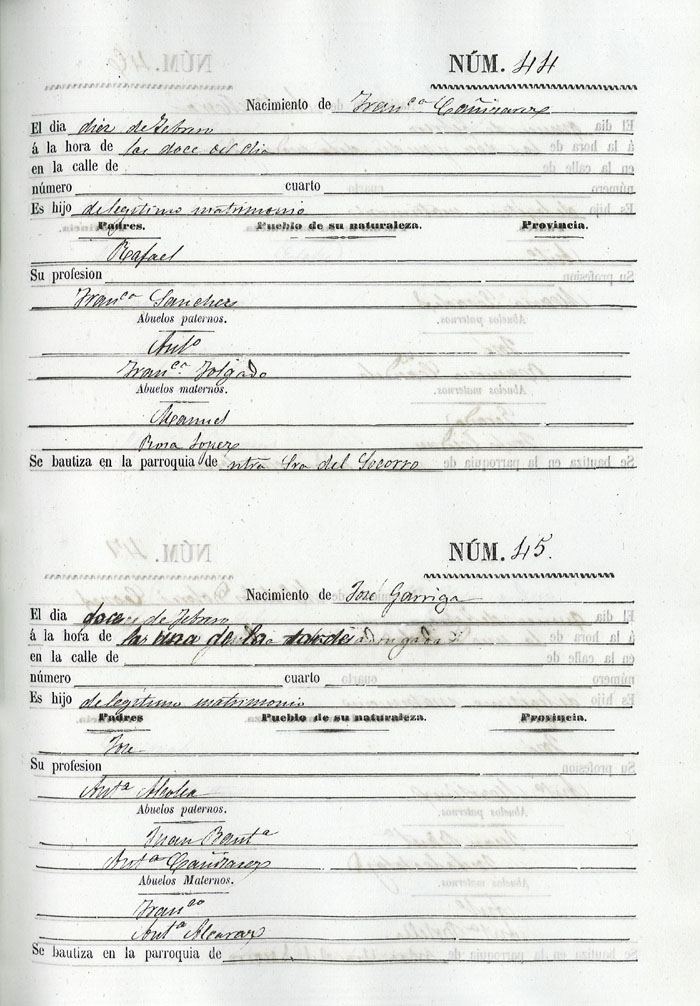 NÚM. 44
Nacimiento de Fran.ca Cañizares
El dia diez de Febrero
á la hora de las doce del dia
en la calle de
número cuarto
Es hijo de legitimo matrimonio
Padres. Pueblo de su naturaleza. Provincia.
Rafael
Su profesion
Fran.ca Sanchez
Abuelos paternos.
Ant.o
Fran.ca Folgado
Abuelos maternos.
Manuel
Rosa Lopez
Se bautiza en la parroquia de ntra Sra del Socorro
NÚM. 45.
Nacimiento de José Garriga
El dia doce de Febrero
á la hora de las una de la
en la calle de
número cuarto
Es hijo de legítimo matrimonio
Padres Pueblo de su naturaleza. Provincia.
Jose
Su profesion
Ant.a
Abuelos paternos.
Juan Baut.a
Ant.a Cañizares
Abuelos Maternos.
Fran.co
Ant.a Alcaraz
Se bautiza en la parroquia de